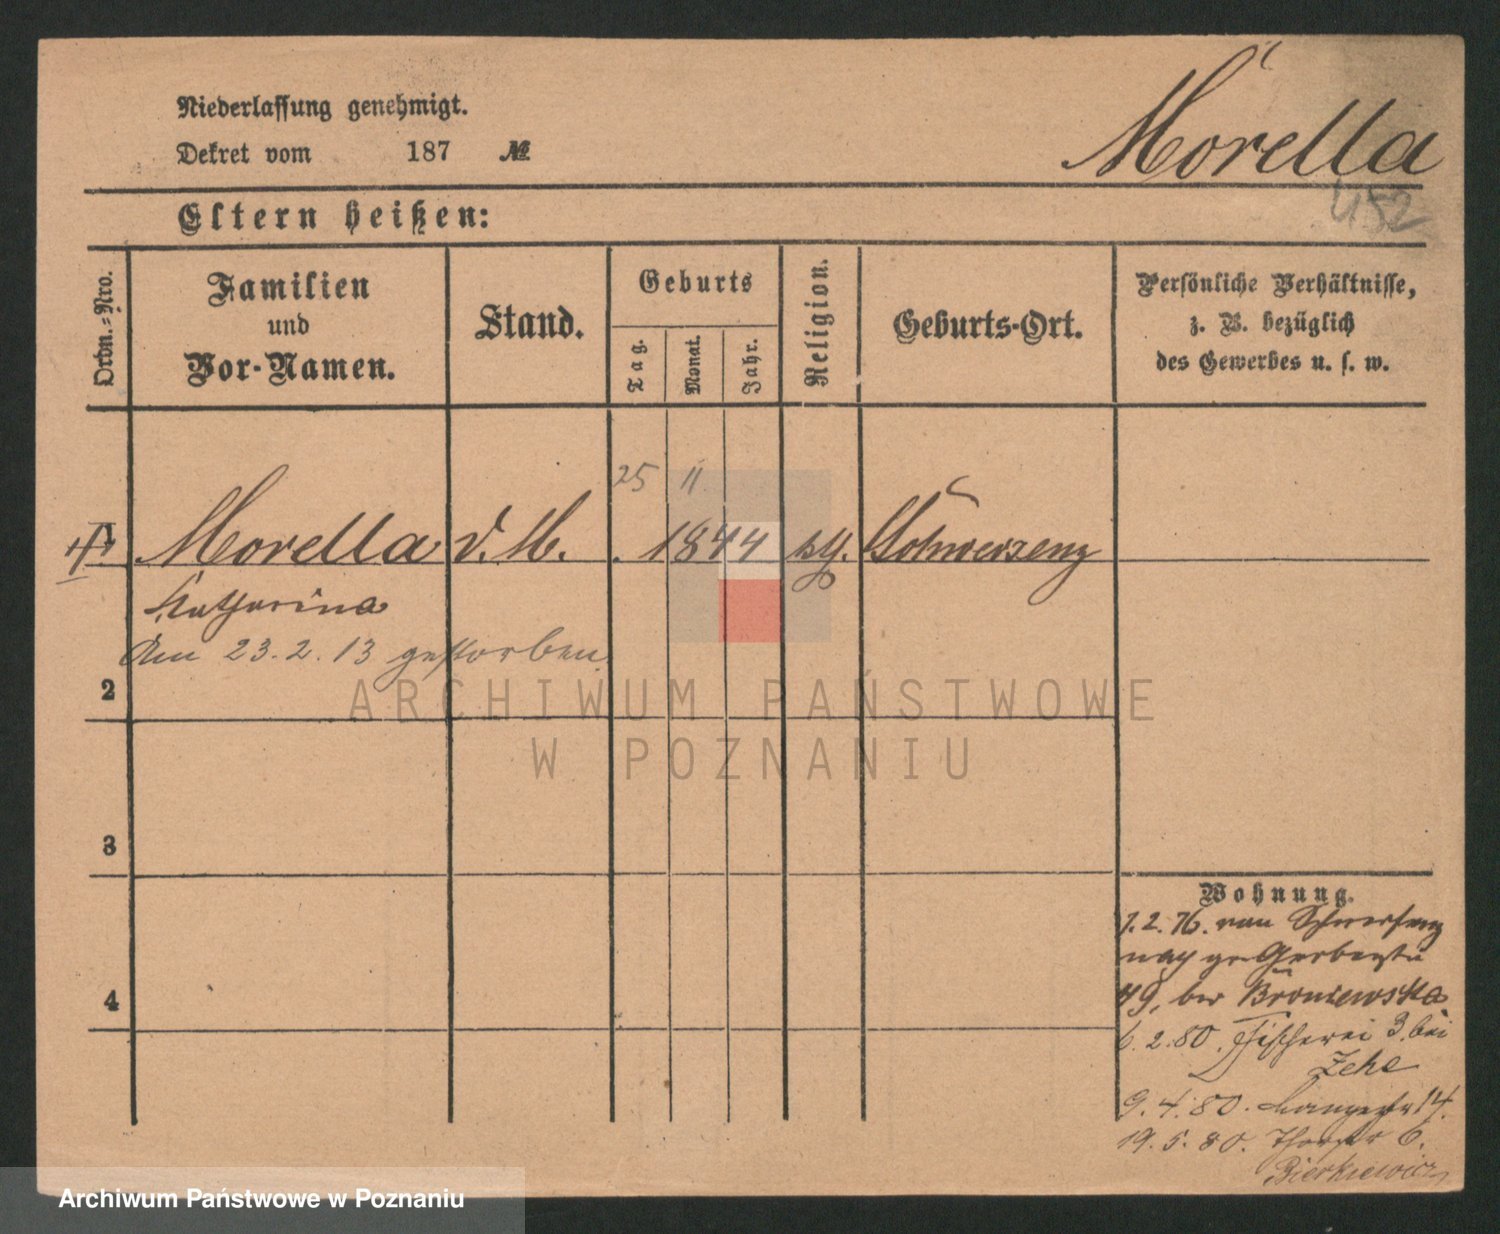 Niederlassung genehmigt.
Dekret vom 187 №
Morella
452
Eltern heißen:
Ordn.-Nro.
Familien
und
Vor-Namen.
Stand.
Geburts
Tag.
Monat.
Jahr.
Religion.
Geburts-Ort.
Persönliche Verhältnisse,
z. B. bezüglich
des Gewerbes u. s. w.
25 11
Morella d. M. 1844 kth. Schwersenz
Katharina
Am 23.2.13 gestorben
2
3
4
Wohnung.
1.2.76. von Schwersenz
nach gr Gerberstr
49, bei Broniewska
6.2.80. Fischerei 3. bei
Zeke
9.4.80. Langestr 14.
19.5.80. Thorstr 6.
Bierkiewicz
ARCHIWUM PAŃSTWOWE
W POZNANIU
Archiwum Państwowe w Poznaniu